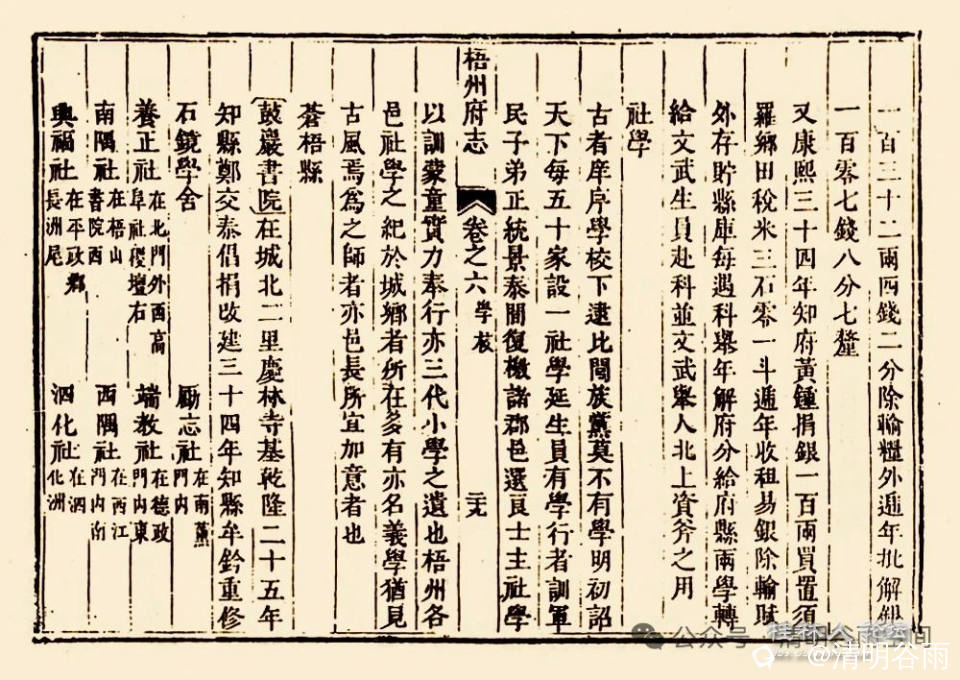 一百三十二兩四錢二分除輸糧外逓年批解銀
一百零七錢八分七釐
又康熙三十四年知府黃鍾捐銀一百兩買置須
羅鄉田稅米三石零一斗逓年收租易銀除輸賦
外存貯縣庫每遇科舉年解府分給府縣兩學轉
給文武生員赴科並文武舉人北上資斧之用
社學
古者庠序學校下逮比閭族黨莫不有學明初詔
天下每五十家設一社學延生員有學行者訓軍
民子弟正統景泰間復檄諸郡邑選良士主社學
梧州府志 卷之六 學校 二十九
以訓蒙童實力奉行亦三代小學之遺也梧州各
邑社學之紀於城鄉者所在多有亦名義學猶見
古風焉爲之師者亦邑長所宜加意者也
蒼梧縣
鼓巖書院在城北二里慶林寺基乾隆二十五年
知縣鄭交泰倡捐改建三十四年知縣牟鈐重修
石鏡學舍 勵志社在南薰門內
養正社在北門外西高阜社稷壇右 端教社在德政門內東
南隅社在梧山書院西 西隅社在西江門內南
興福社在平政鄉長洲尾 泗化社在泗化洲
公众号
@清明谷雨